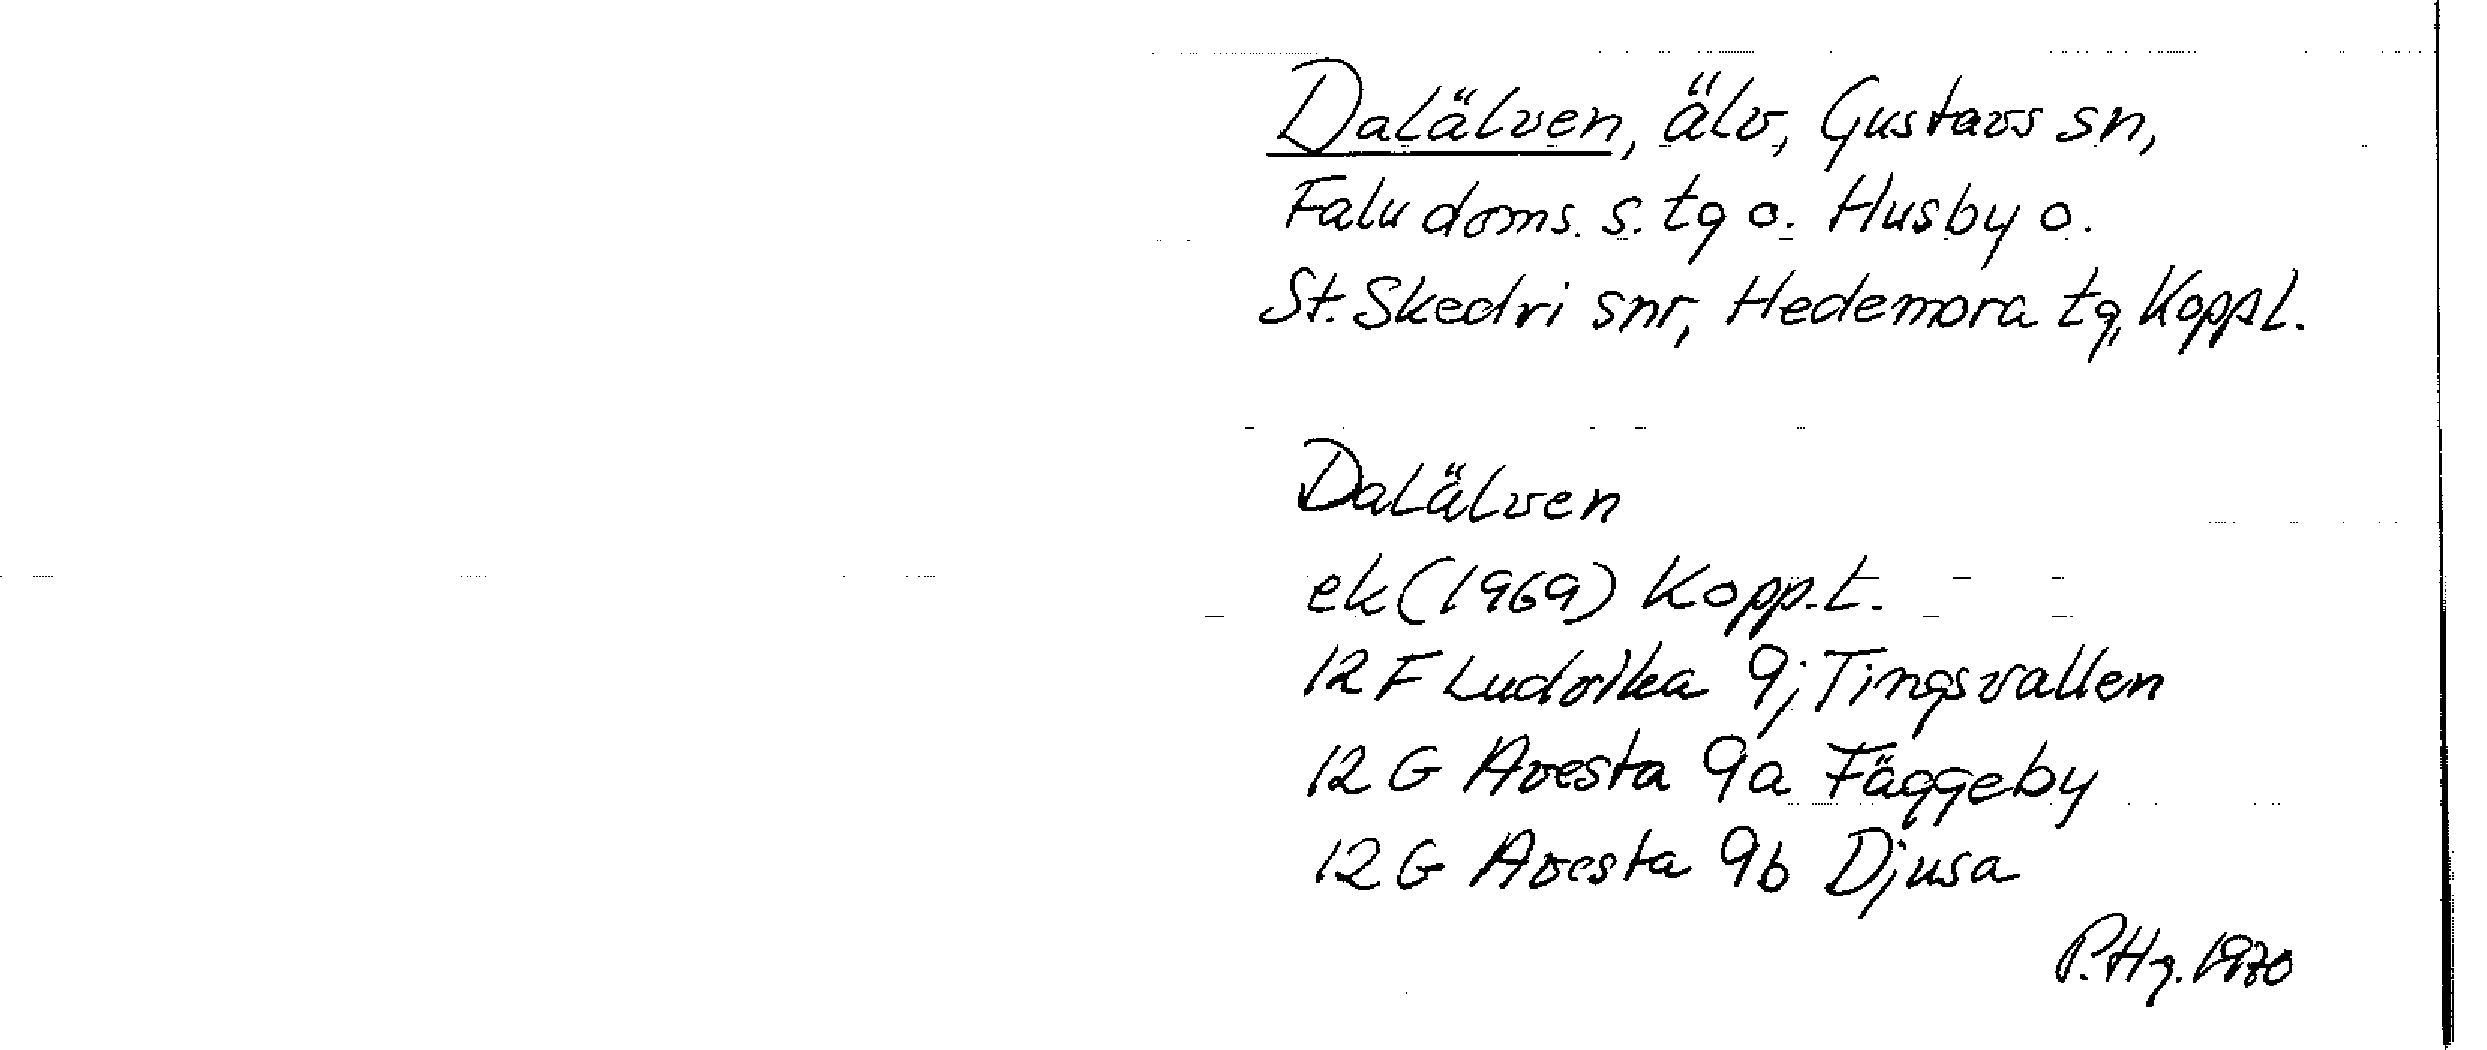 Dalälven, älv, Gustavs sn,
Falu doms. s. tg o. Husby o.
St. Skedvi snr, Hedemora tg, Koppl.
Dalälven
ek (1969) Kopp. L.
12 F Ludvika 9j Tingsvallen
12 G Avesta 9a Fäggeby
12 G Avesta 9b Djusa
P. Hg. 1970